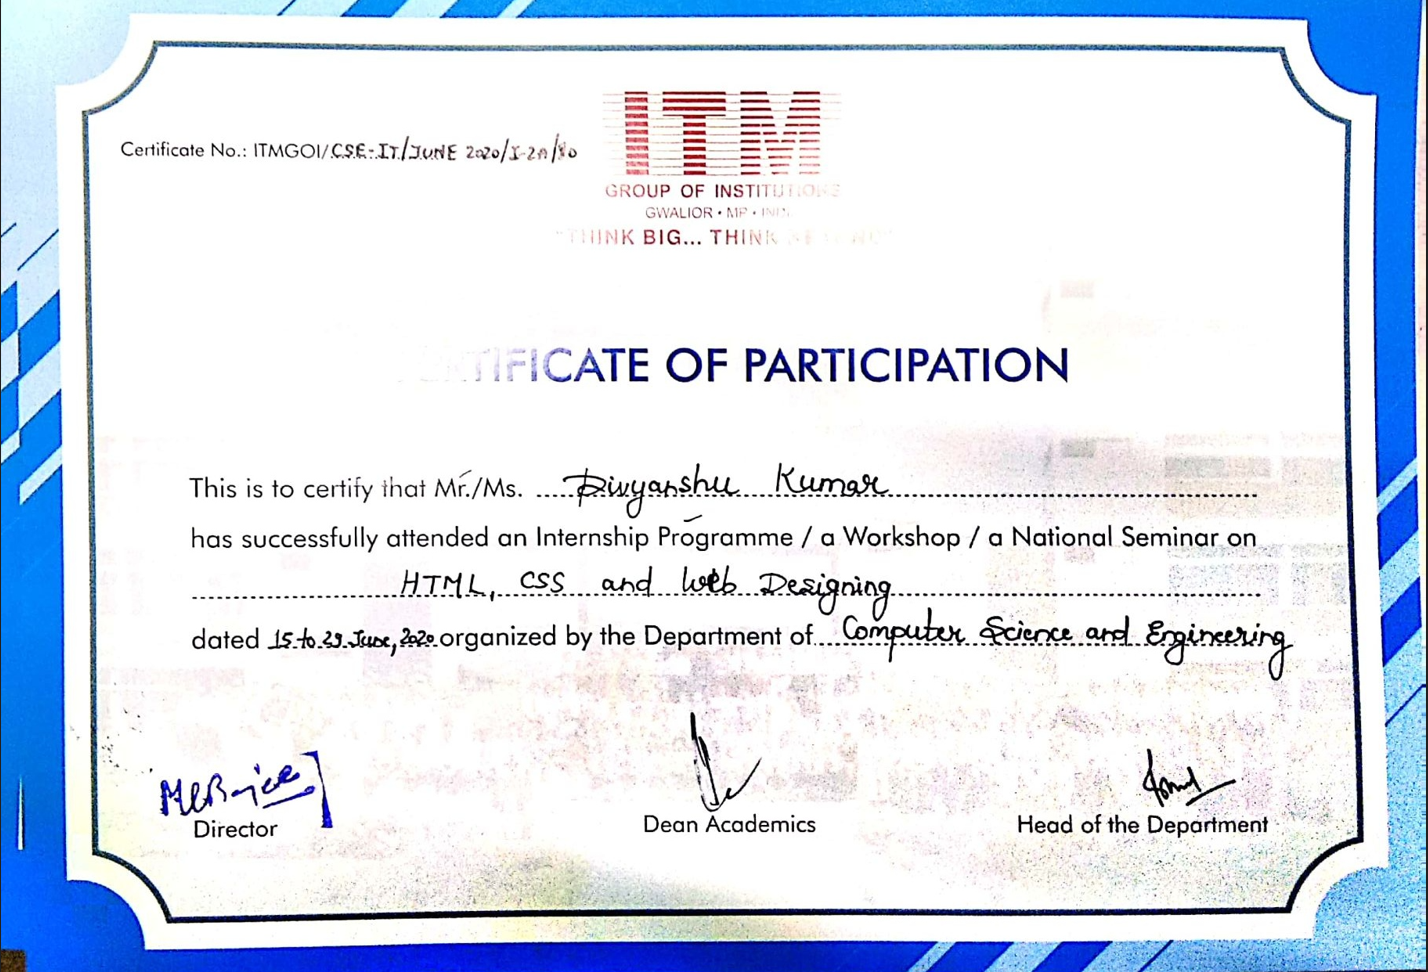 Certificate No.: ITMGOI/CSE-IT/JUNE 2020/I-2A/80
ITM
GROUP OF INSTITUTIONS
GWALIOR • MP •
"THINK BIG... THINK
CERTIFICATE OF PARTICIPATION
This is to certify that Mr./Ms. Divyanshu Kumar
has successfully attended an Internship Programme / a Workshop / a National Seminar on
HTML, CSS and Web Designing
dated 15 to 29 June, 2020 organized by the Department of Computer Science and Engineering
Director
Dean Academics
Head of the Department